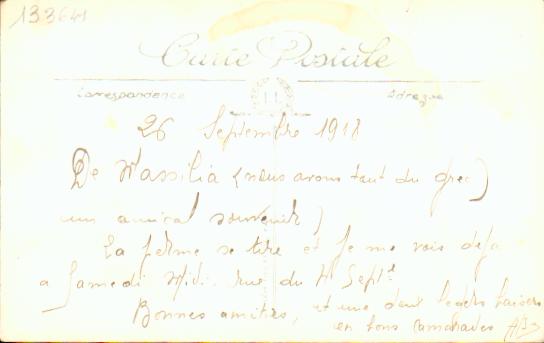 133641
Carte Postale
Correspondance
Adresse
26 Septembre 1918
De Massilia (nous avons tant du grec)
un amical souvenir)
La ferme se tire et je me vois déja
a Samedi Midi, rue du 4 Septe
Bonnes amitiés, et une deux baisers
en bons camarades